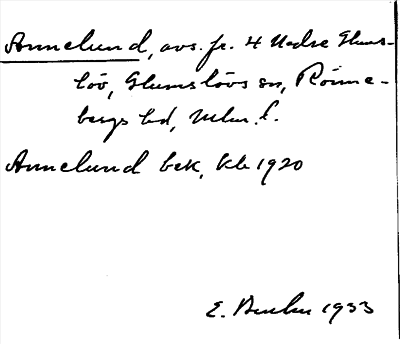 Annelund, avs. fr. 4 Nedre Glums-
löv, Glumslövs sn, Rönne-
bergs hd, Mlm. l.
Annelund bek, kb 1920
E. 1933